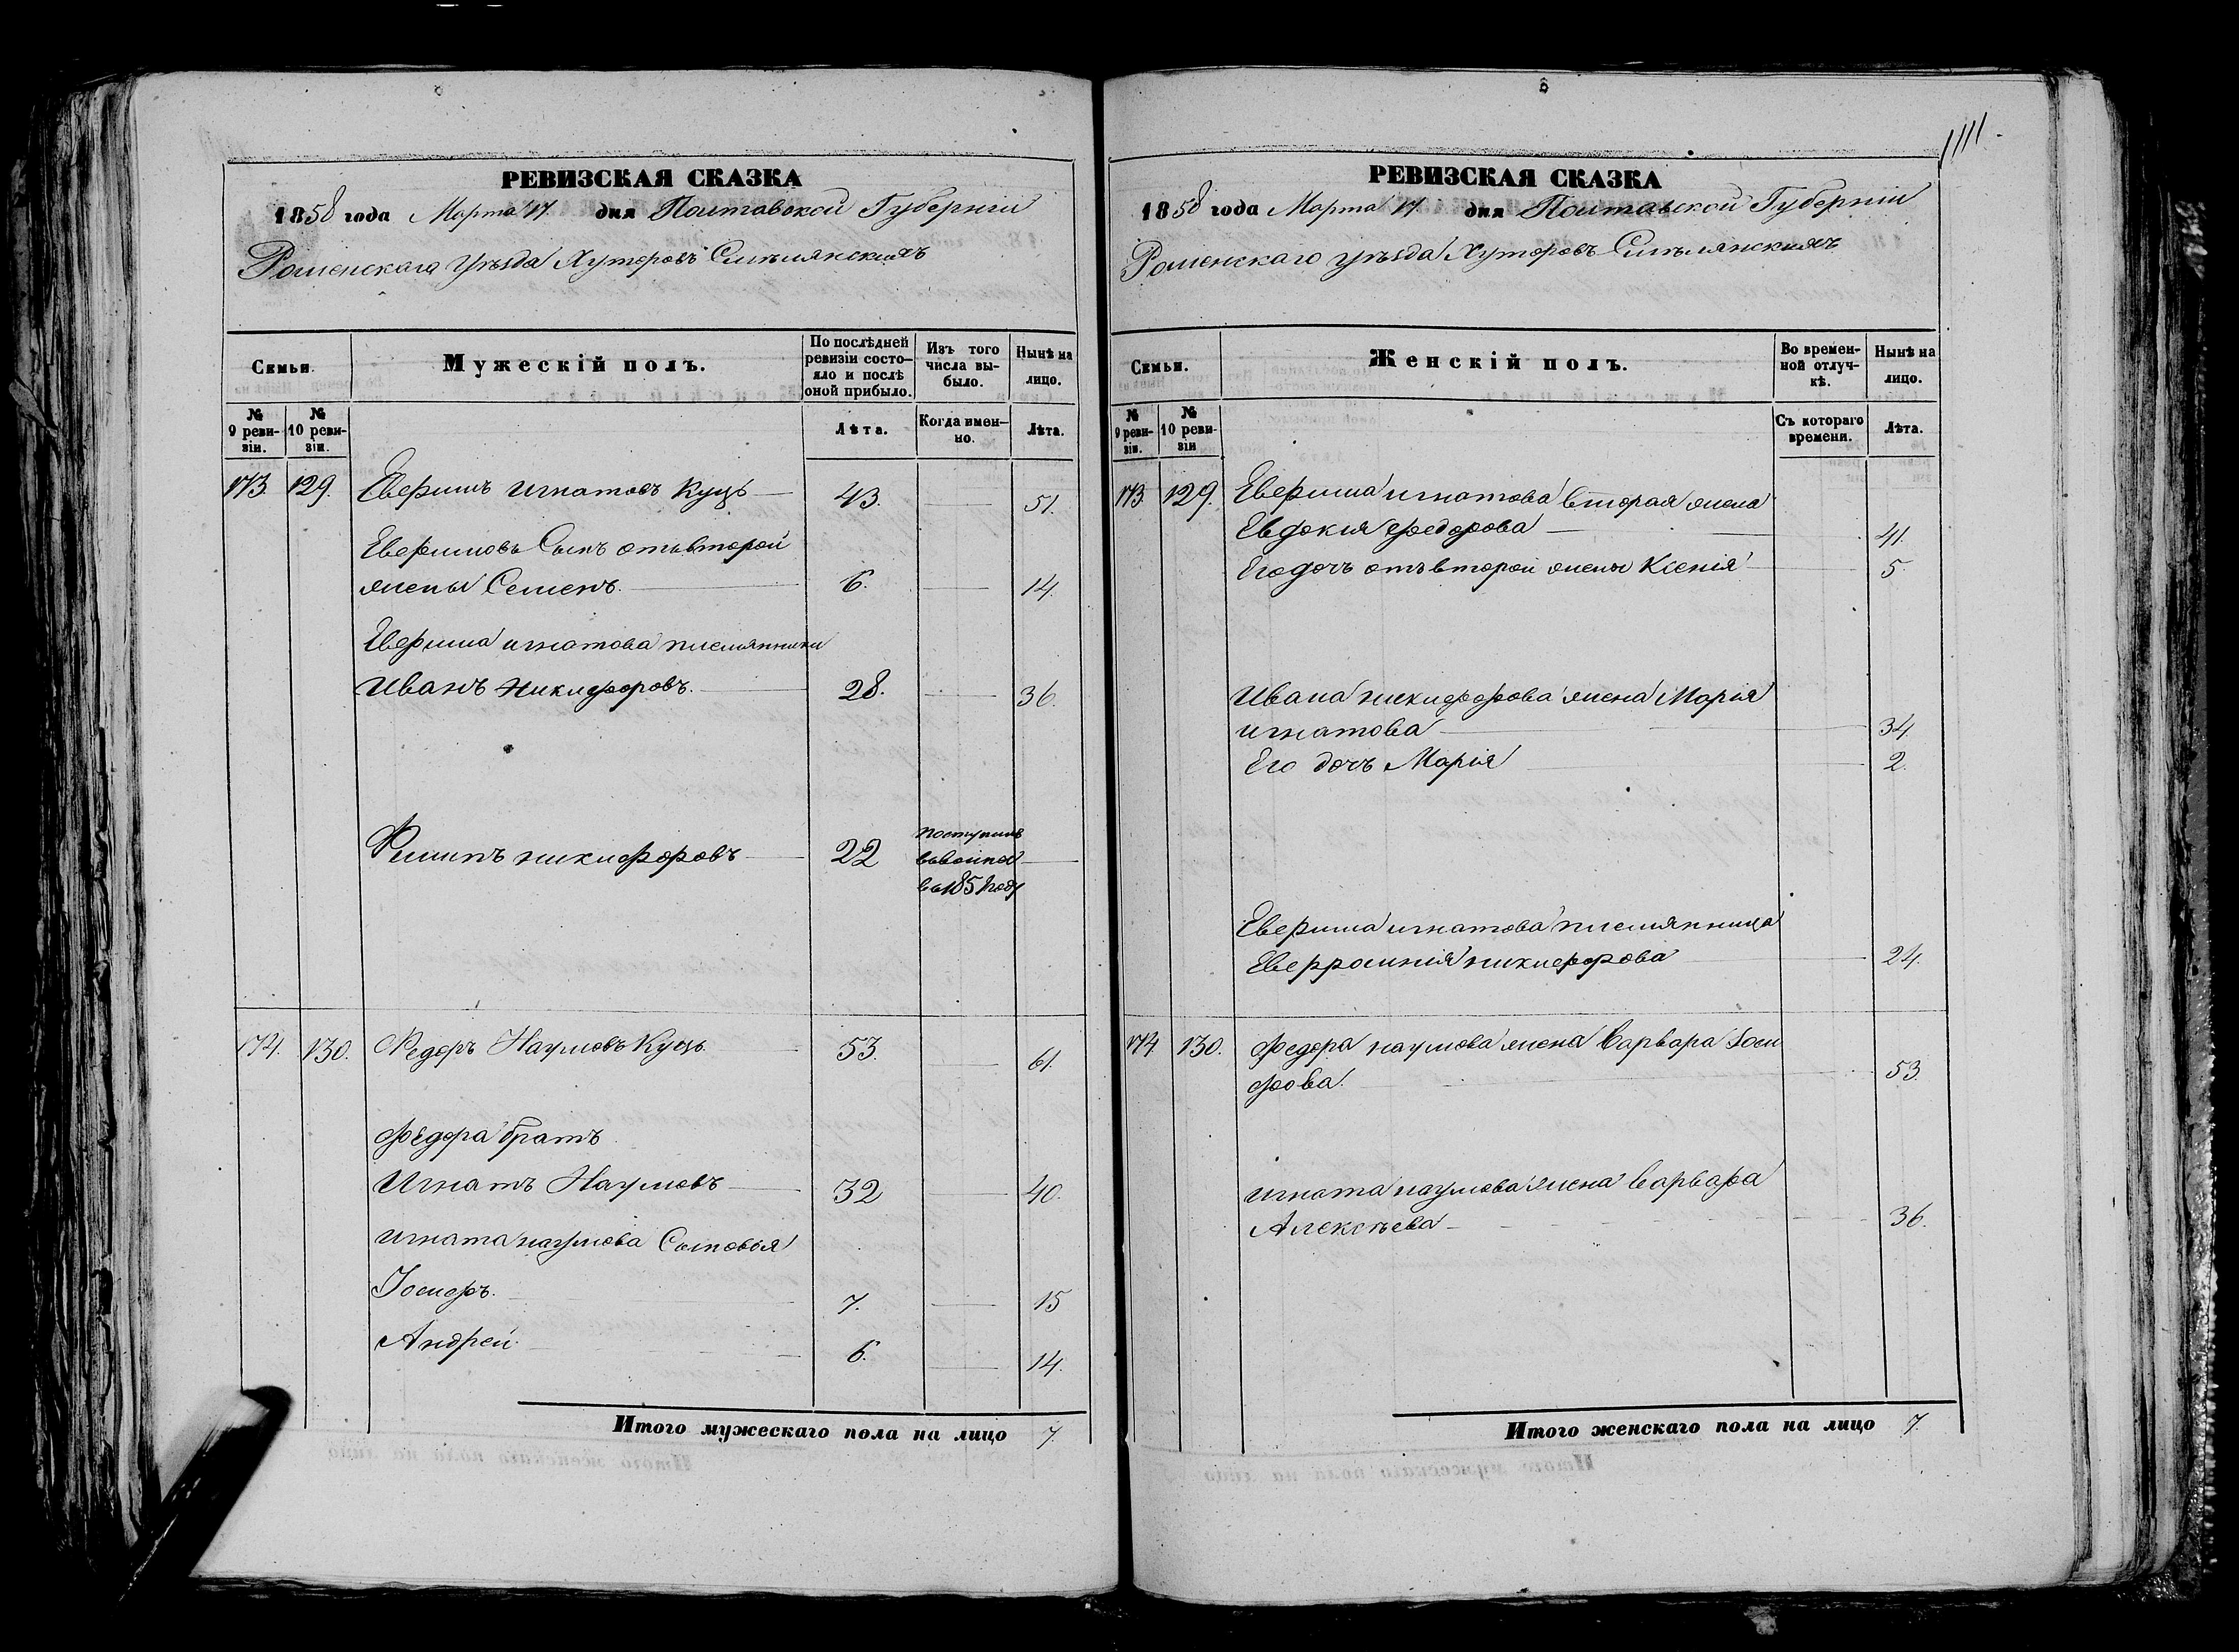 1111.
РЕВИЗСКАЯ СКАЗКА
1858 года Марта 17. дня Полтавской Губерніи
Роменскаго уѣзда Хуторовъ Смѣлянскихъ
Семьи. Мужескій полъ. По послѣдней ревизіи состояло и послѣ оной прибыло. Изъ того числа выбыло. Нынѣ на лицо.
№ 9 ревизіи. № 10 ревизіи. Лѣта. Когда именно. Лѣта.
173. 129. Евфимъ Игнатовъ Куцъ 43. 51.
Евфимовъ Сынъ отъ второй
жены Семенъ. 6. 14.
Евфима Игнатова племянники
Иванъ Никифоровъ. 28. 36.
Филипъ Никифоровъ 22 поступилъ
въ
въ 185 году
174. 130. Федоръ Наумовъ Куцъ. 53. 61.
Федора братъ
Игнатъ Наумовъ 32 40.
Игната Наумова Сыновья
Іосифъ. 7. 15
Андрей. 6. 14.
Итого мужескаго пола на лицо 7.
РЕВИЗСКАЯ СКАЗКА
1858 года Марта 17. дня Полтавской Губерніи
Роменскаго уѣзда Хуторовъ Смѣлянскихъ
Семьи. Женскій полъ. Во временной отлучкѣ. Нынѣ на лицо.
№ 9 ревизіи. № 10 ревизіи Съ котораго времени. Лѣта.
173 129. Евфима Игнатова вторая жена
Евдокия Федорова 41.
Его дочь отъ второй жены Ксенія 5.
Ивана Никифорова жена Марія
Игнатова 34.
Его дочь Марія 2.
Евфима Игнатова племянница
Евфросинія Никифорова 24.
174 130. Федора Наумова жена Варвара Іоси
фова. 53.
Игната Наумова жена Варвара
Алексѣева 36.
Итого женскаго пола на лицо 7.